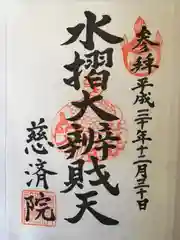 参拝 平成二十年十二月三十日
水摺大辨財天
慈済院